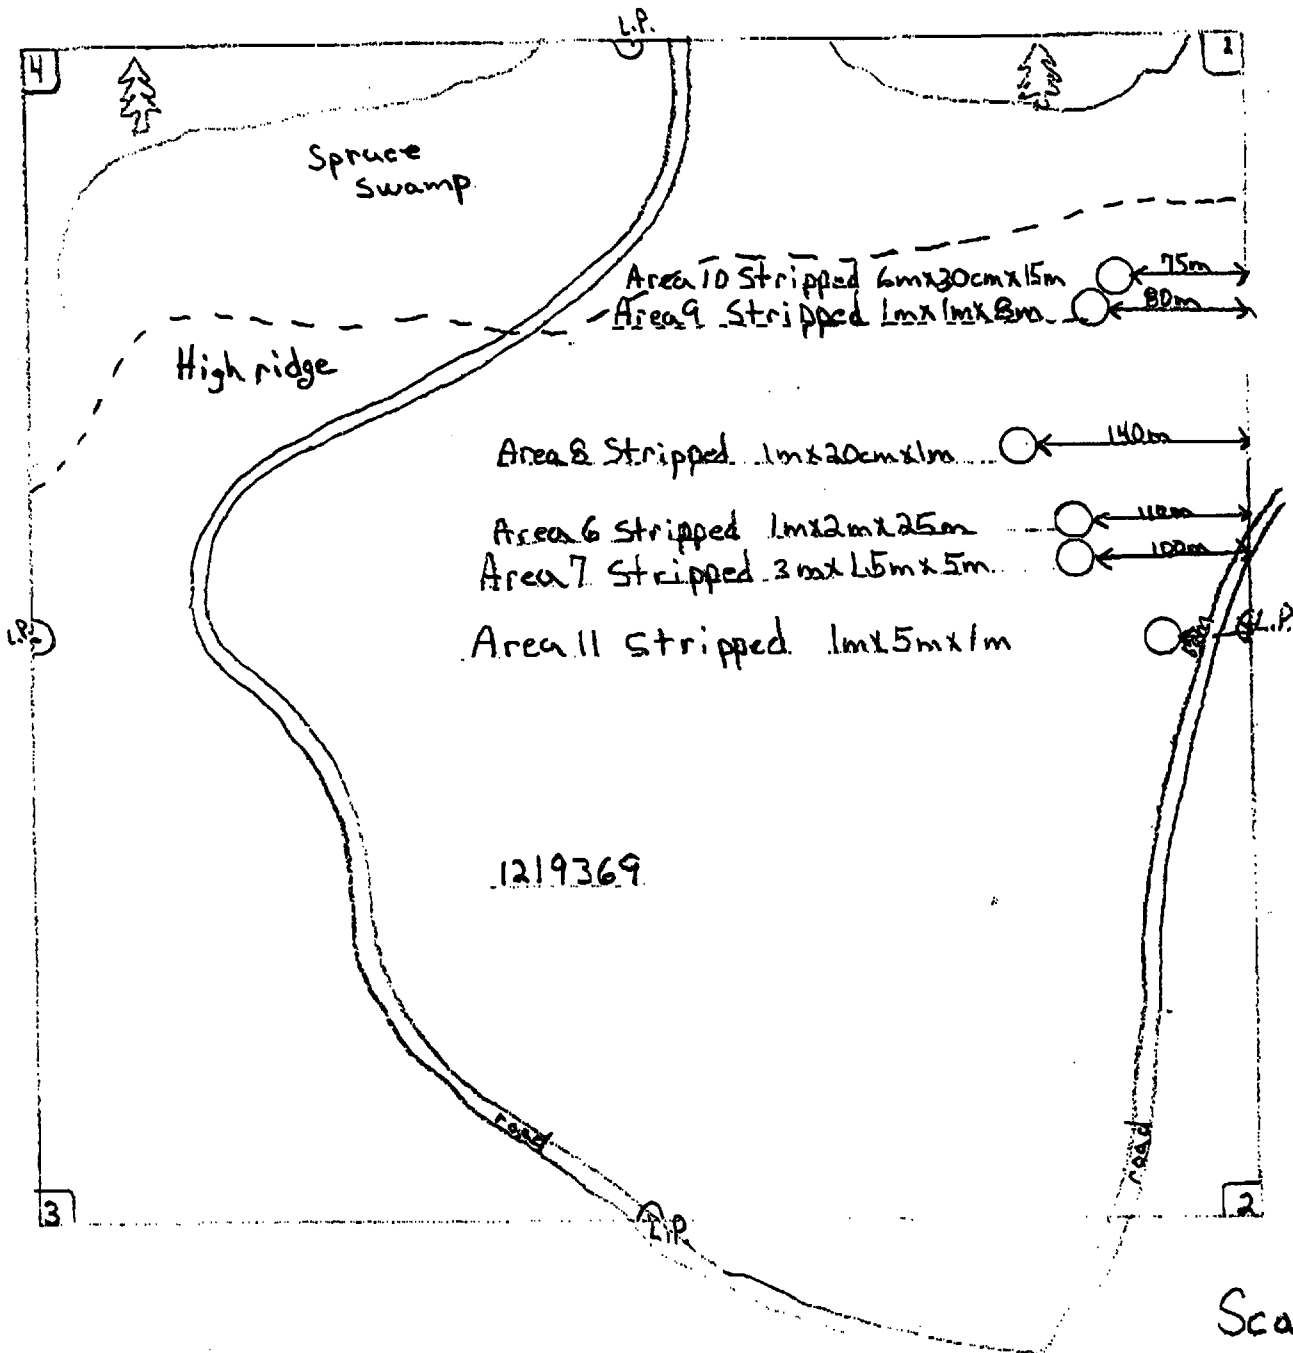 L.P.
4
1
Spruce
Swamp
Area 10 Stripped 6mx30cmx15m
75m
Area 9 Stripped 1mx1mx8m
80m
High ridge
Area 8 Stripped 1mx20cmx1m
140m
Area 6 Stripped 1mx2mx25m
110m
Area 7 Stripped 3mx1.5mx5m
100m
L.P.
Area 11 Stripped 1mx5mx1m
L.P.
1219369
road
road
3
2
L.P.
Sca